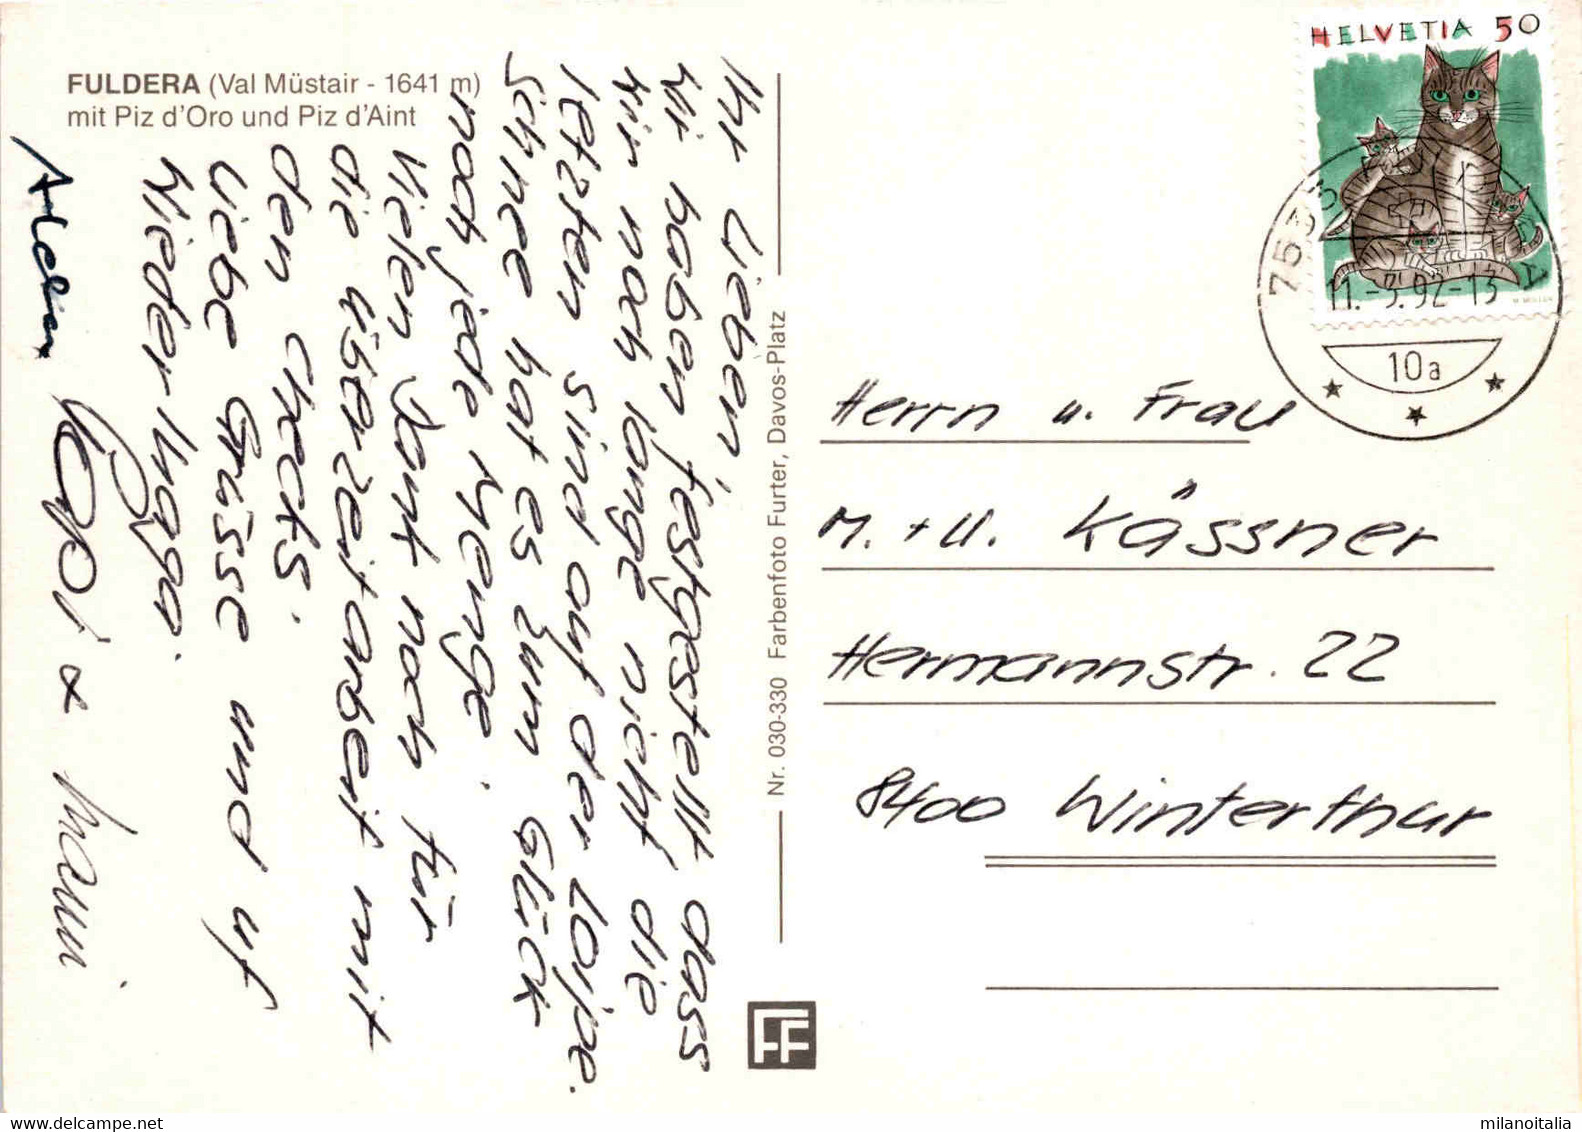 FULDERA (Val Müstair - 1641 m)
mit Piz d'Oro und Piz d'Aint
Ihr Lieben,
Wir haben festgestellt, dass
wir noch lange nicht die
letzten sind auf der Loipe.
Schnee hat es zum Glück
noch jede Menge.
Vielen Dank noch für
die Überzeitarbeit mit
den Checks.
Liebe Grüsse und uf
Wiederluaga.
Papi & Mami
Nr. 030-330 Farbenfoto Furter, Davos-Platz
FF
HELVETIA 50
7533
11.-3.92-13
10a
Herrn u. Frau
M. + U. Kässner
Hermannstr. 22
8400 Winterthur
milanoitalia